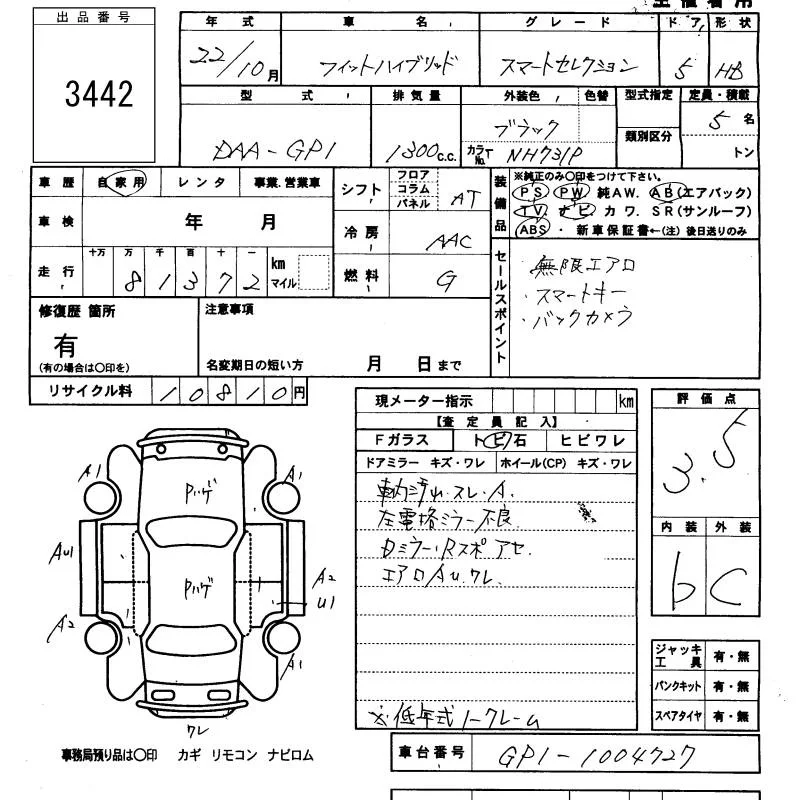 出品番号
3442
年式 車名 グレード ドア 形状
22/10月 フィットハイブリッド スマートセレクション 5 HB
型式 排気量 外装色 色替 型式指定 定員・積載
DAA-GP1 1300c.c. ブラック 類別区分 5名
カラーNo. NH731P トン
車歴 自家用 レンタ 事業.営業車
シフト フロア コラム パネル AT
装備品 ※純正のみ〇印をつけて下さい。
PS PW 純AW. AB(エアバック)
TV ナビ カワ. SR(サンルーフ)
ABS ・ 新車保証書←(注)後日送りのみ
車検 年 月
冷房 AAC
走行 十万 万 千 百 十 一
81372 km マイル
燃料 G
セールスポイント
無限エアロ
・スマートキー
・バックカメラ
修復歴 箇所
有
(有の場合は〇印を)
注意事項
名変期日の短い方 月 日まで
リサイクル料 10810円
現メーター指示 km
【査定員記入】
Fガラス トビ石 ヒビワレ
ドアミラー キズ・ワレ ホイール(CP) キズ・ワレ
車内汚れ.スレ.A.
左電格ミラー不良
Dミラー・Rスポ アセ.
エアロ AU.ワレ.
※低年式ノークレーム
評価点
3.5
内装 外装
b C
ジャッキ工具 有・無
パンクキット 有・無
スペアタイヤ 有・無
A1 Pハゲ A1
AU1 Pハゲ A2
U1
A2 A1
ワレ
事務局預り品は〇印 カギ リモコン ナビロム
車台番号 GP1-1004727